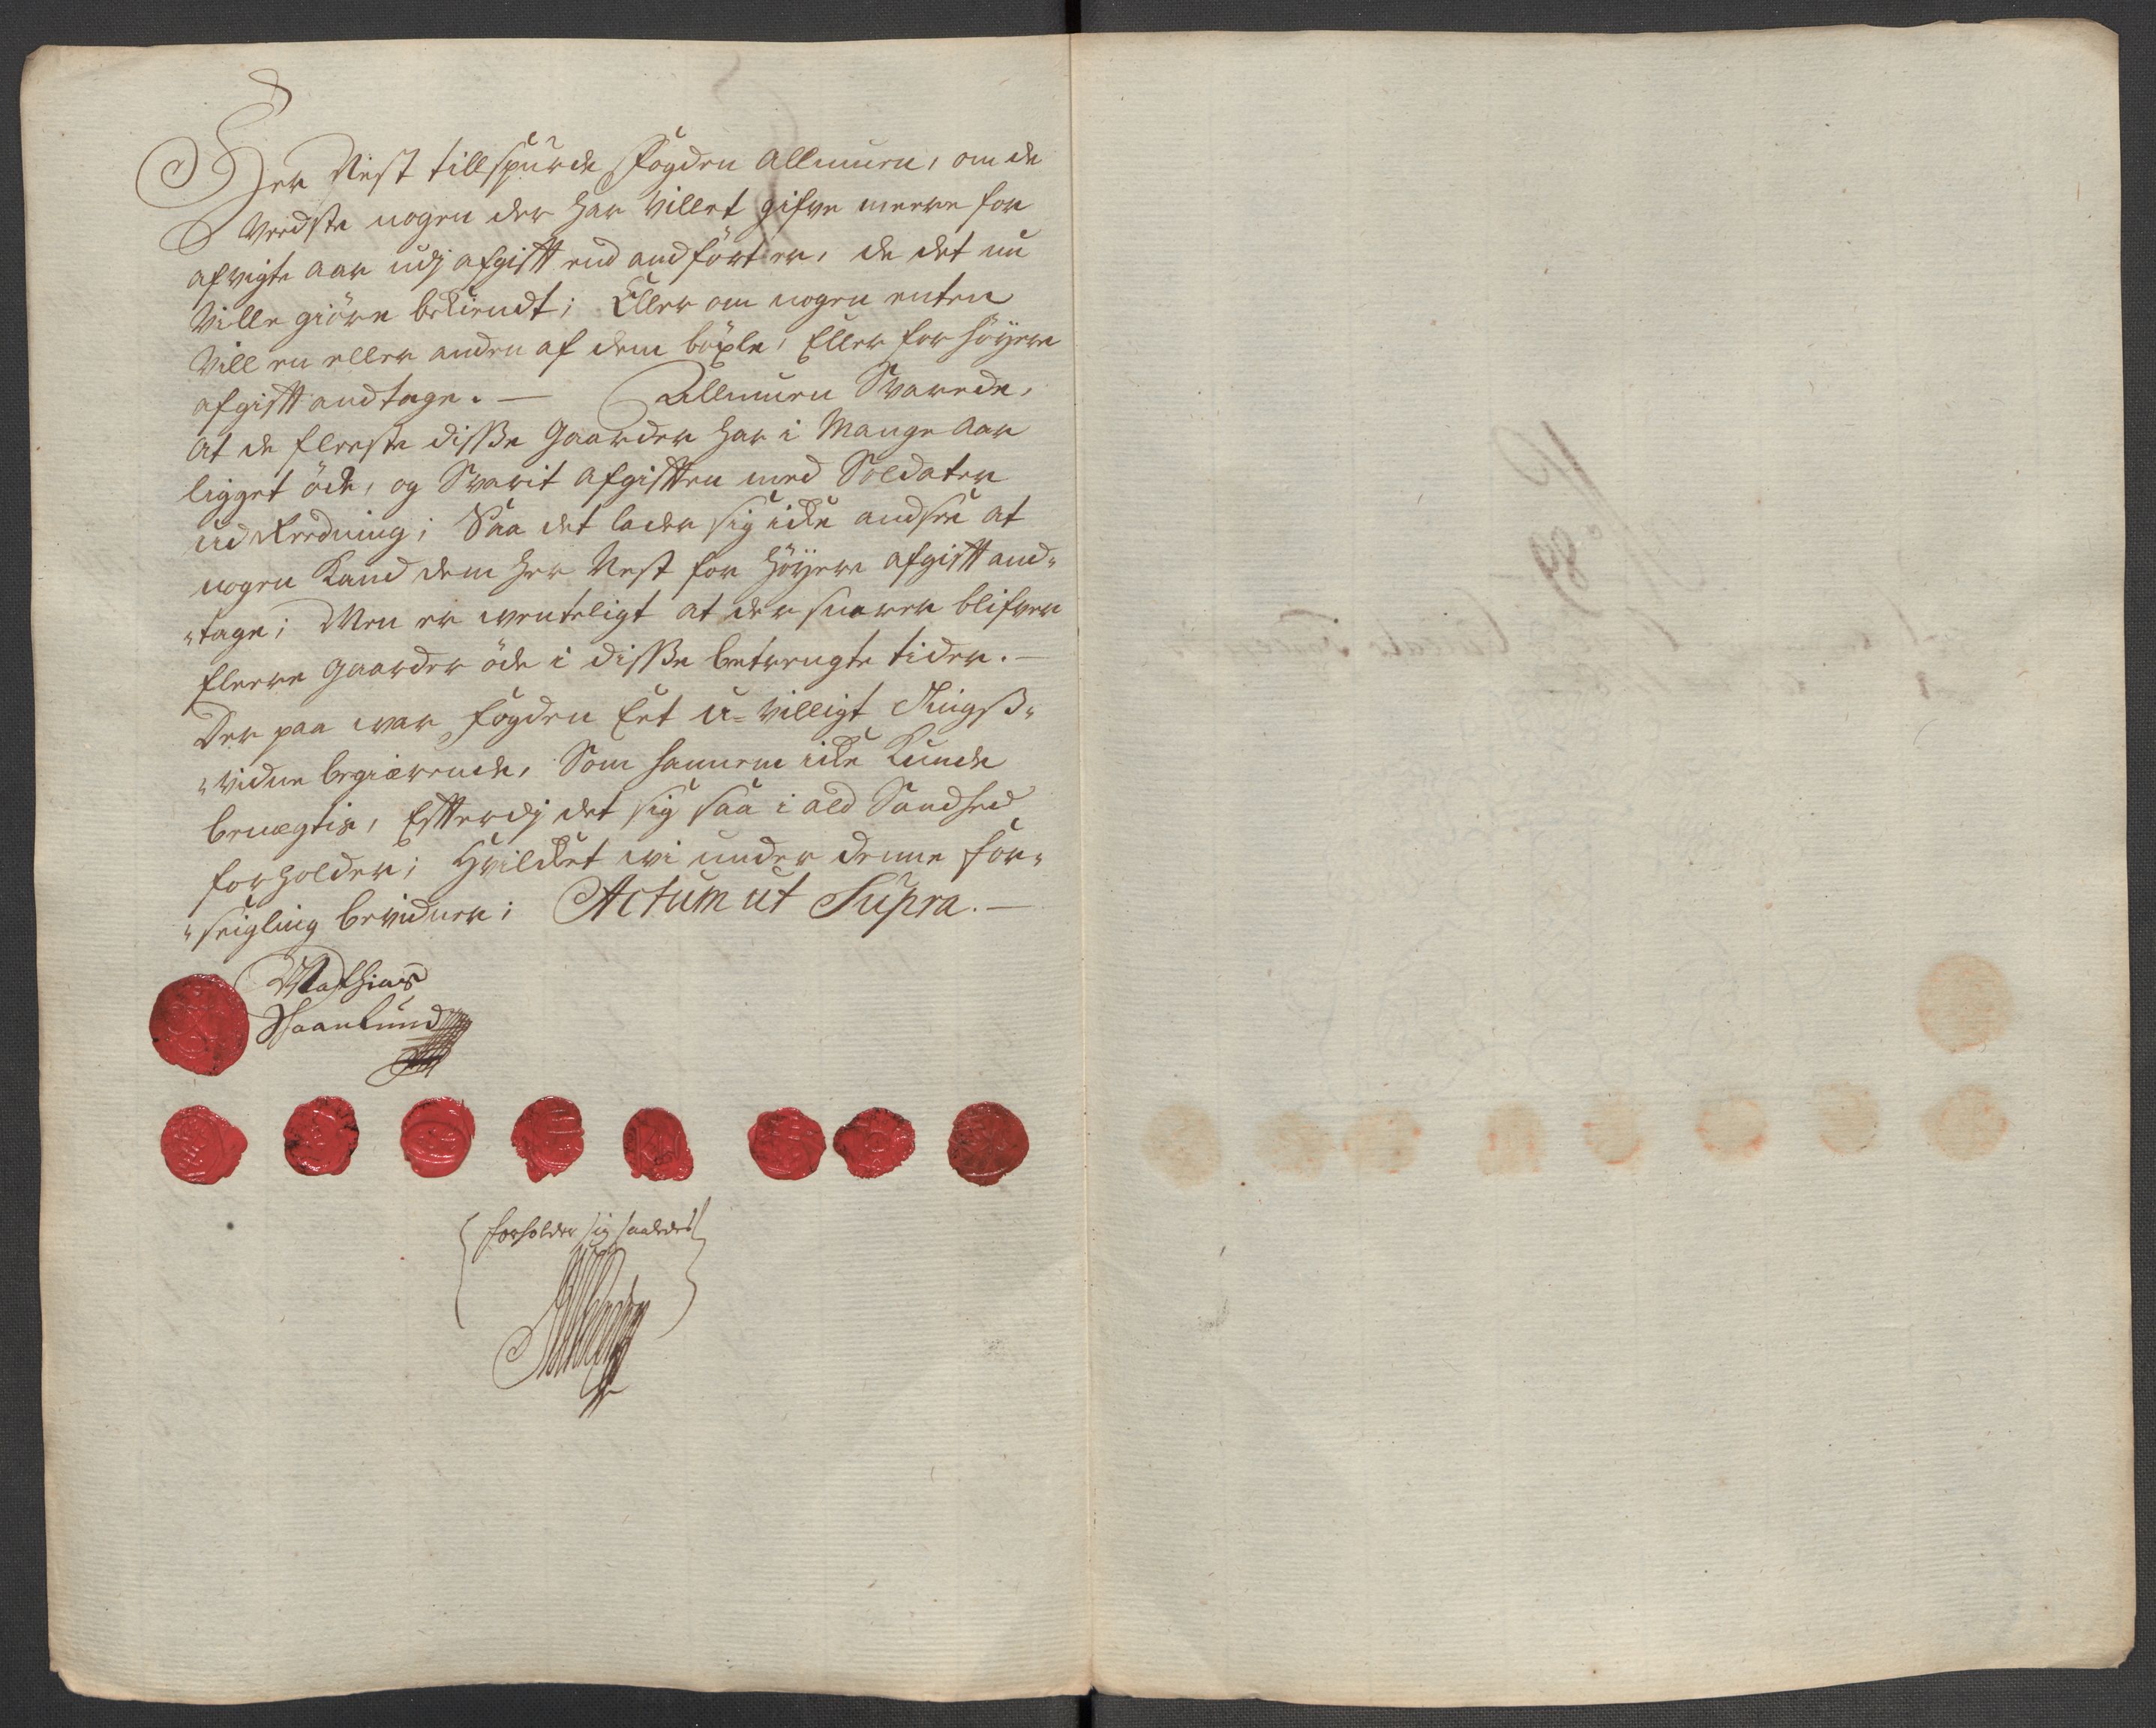 Her Nest tillspurde Fogden Allmuen, om de
Veedste nogen der har Villet gifve meere for
afvigte aar udj afgifft end andført er, de det nu
Ville giøre bekiendt; Eller om nogen enten
Vill en eller anden af dem bøxle, Eller for høyere
afgifft andtage. — Allmuen Svarede,
At de fleeste disse Gaarder har i Mange Aar
ligget øde, og Svarit afgifften med Soldater
ud Reedning; Saa det lader sig icke andsee at
nogen Kand dem her Nest for høyere afgifft and-
-tage; Men er wenteligt at der snarer blifver
fleere gaarder øde i disse betrengte tider. —
Der paa war fogden Eet u-villigt Tings-
-vidne begiærende, Som hannem icke Kunde
benægtis, Effterdj det sig saa i ald Sandhed
forholder; Hvilcket wi under denne for-
-seigling bevidner; Actum ut Supra. —
Mathias
forholder sig saaledes